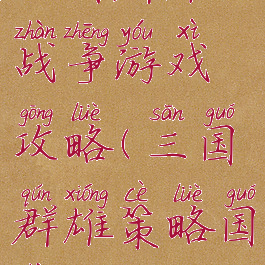 zhàn zhēng yóu xì
战争游戏
gōng lüè sān guó
攻略(三国
qún xióng cè lüè guó
群雄策略国